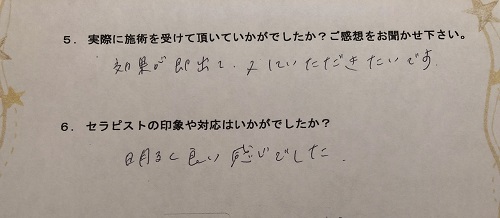 5. 実際に施術を受けて頂いていかがでしたか?ご感想をお聞かせ下さい。
効果が即出て、又していただきたいです
6. セラピストの印象や対応はいかがでしたか?
明るく良い感じでした.